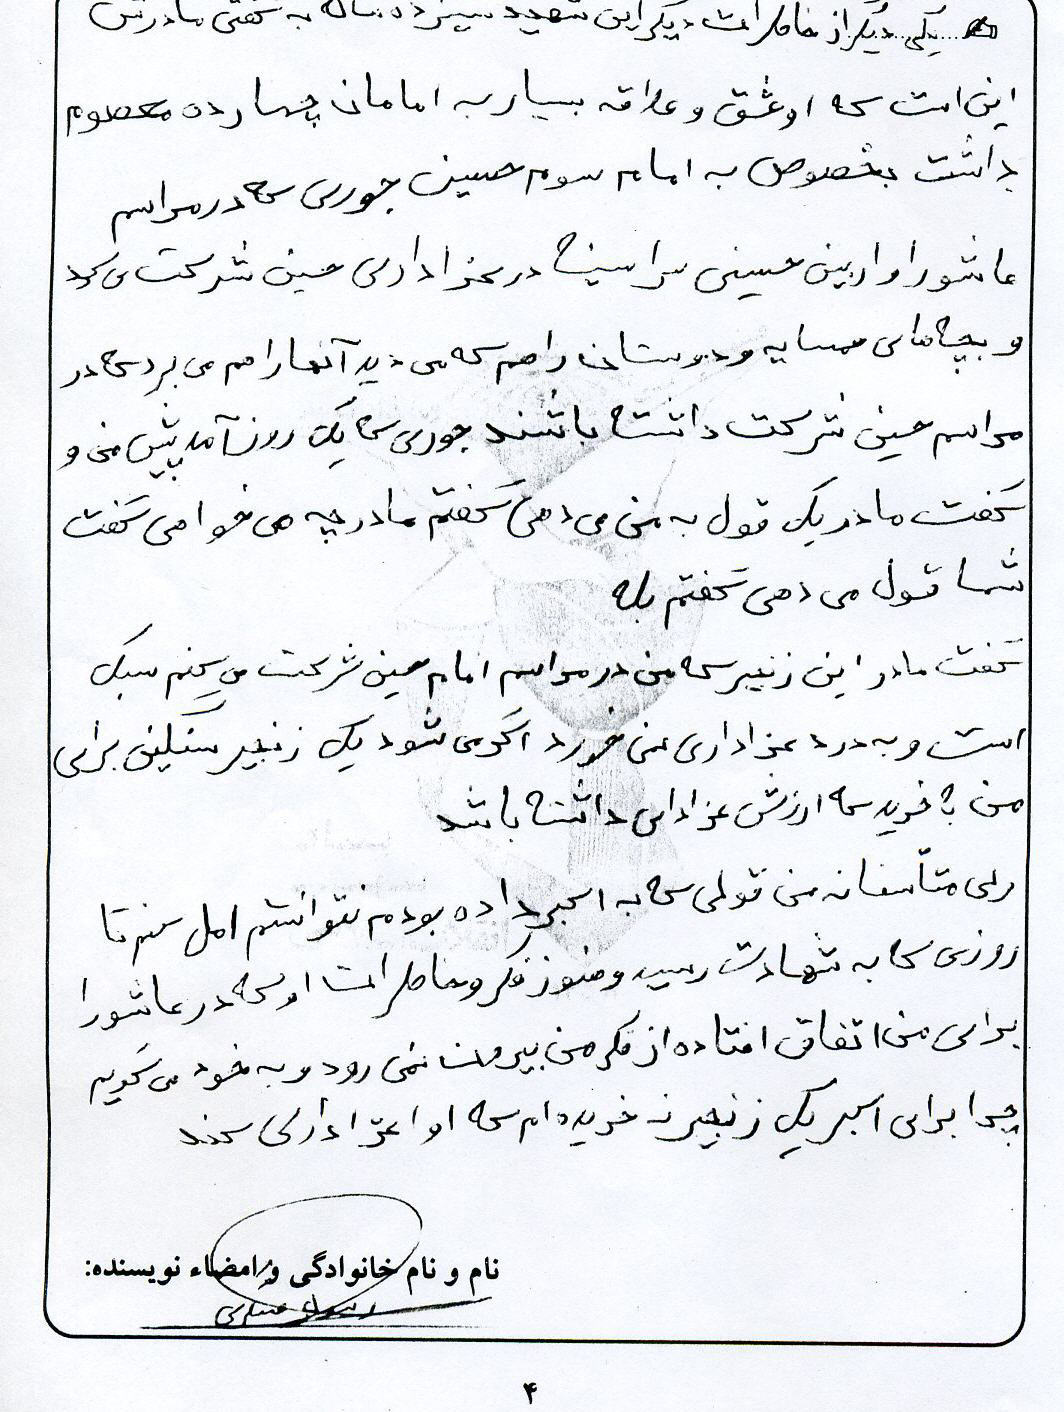 یکی دیگر از خاطرات دیگر این شهید سیزده ساله به گفتی مادرش
این است که او عشق و علاقه بسیار به امامان چهارده معصوم
داشت بخصوص به امام سوم حسین جوری که در مراسم
عاشورا و اربین حسینی سراسیخ در عزاداری حسین شرکت می کرد
و بچه های همسایه و دوستان را هم که می دید آنها را هم می برد که در
مراسم حسین شرکت داشته باشند جوری که یک روز آمد پیش من و
گفت مادر یک قول به من می دهی گفتم مادر چه می خواهی گفت
شما قول می دهی گفتم بله
گفت مادر این زنجیر که من در مراسم امام حسین شرکت می کنم سبک
است و به درد عزاداری نمی خورد اگر می شود یک زنجیر سنگین برای
من بخرید که ارزش عزادای داشته باشد
ولی متأسفانه من قولی که به اکبر داده بودم نتوانستم امل کنم تا
روزی که به شهادت رسید و هنوز فکر و خاطرات او که در عاشورا
برای من اتفاق افتاده از فکر من بیرون نمی رود و به خود می گویم
چرا برای اکبر یک زنجیر نه خریده ام که او اعزاداری کند
نام و نام خانوادگی و امضاء نویسنده:
۴